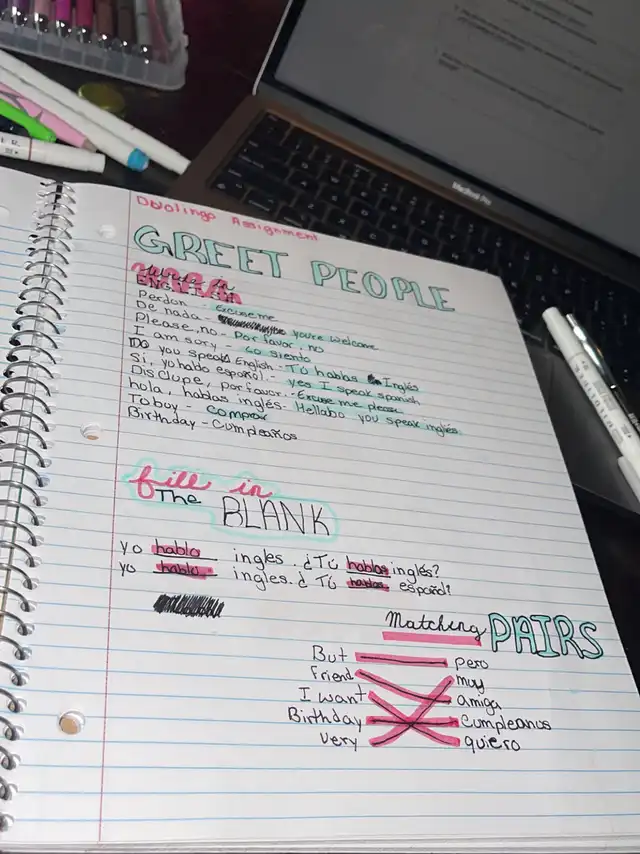 MacBook Pro
Duolingo Assignment
GREET PEOPLE
Perdon - Excuse me
De nada - you're welcome
Please, no - Por favor, no
I am sory - Lo siento
DO you speak English - Tú hablas Inglés
Si, yo hablo español - yes I speak spanish
Disculpe, por favor - Excuse me please
hola, hablas inglés - Hellabo you speak inglés
To buy - comprar
Birthday - Cumpleaños
fill in
The BLANK
yo hablo ingles. ¿Tú hablas inglés?
yo hablo ingles. ¿ Tú hablas español?
Matching PAIRS
But pero
Friend muy
I want amiga
Birthday Cumpleanos
Very quiero